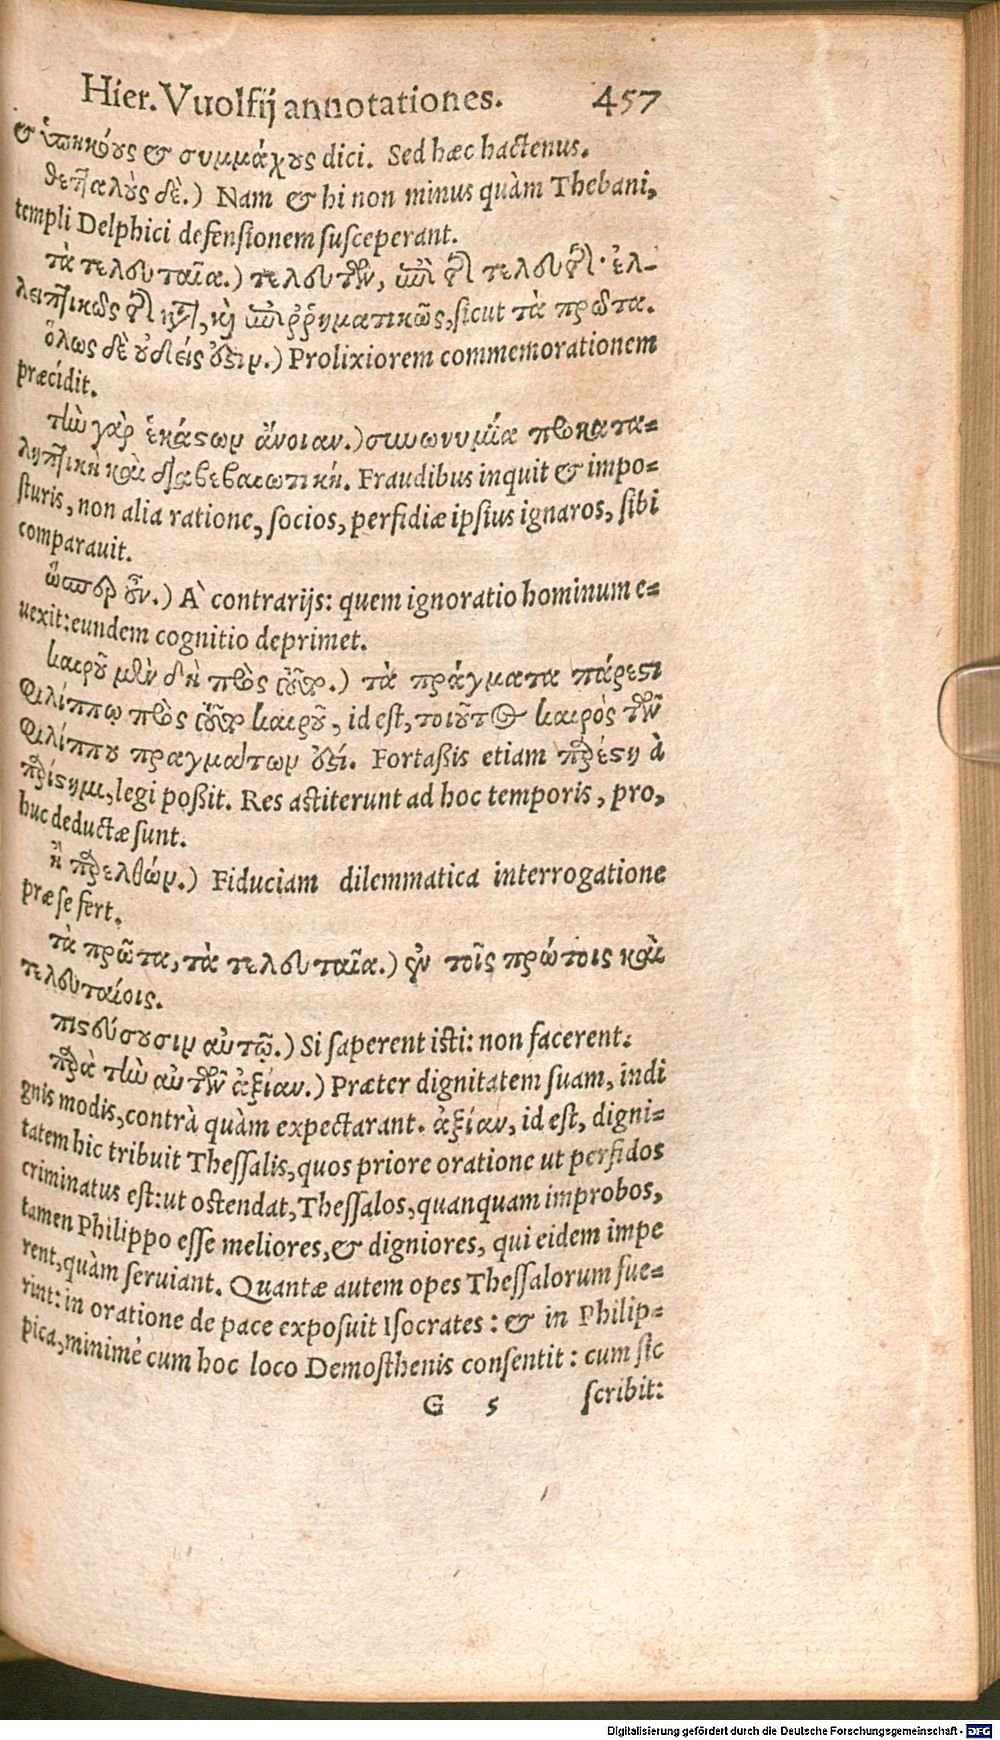 Hier. Vuolfij annotationes. 457
& ὑπηκόους & συμμάχους dici. Sed hæc hactenus.
θετταλοὺς δὲ.) Nam & hi non minus quàm Thebani,
templi Delphici defensionem susceperant.
τὰ τελευταῖα.) τελευτῶν, ἐπὶ τῇ τελευτῇ· ἐλ-
λειπτικῶς τῇ κτ, καὶ ἐπιῤῥηματικῶς, sicut τὰ πρῶτα.
ὅλως δὲ οὐδείς ἐστιν.) Prolixiorem commemorationem
præcidit.
τὴν γὰρ ἑκάστων ἄνοιαν.) συνωνυμία προκατα-
ληπτικὴ καὶ διαβεβαιωτική. Fraudibus inquit & impo-
sturis, non alia ratione, socios, perfidiæ ipsius ignaros, sibi
comparauit.
ὥσπερ οὖν.) A` contrarijs: quem ignoratio hominum e-
uexit: eundem cognitio deprimet.
καιροῦ μὲν δὴ πρὸς τοῦτον.) τὰ πράγματα πάρεστι
Φιλίππῳ πρὸς τοῦτον καιροῦ, id est, τοιοῦτος καιρὸς τῶν
Φιλίππου πραγμάτων ἐστί. Fortaßis etiam παρέστη à
παρίστημι, legi poßit. Res astiterunt ad hoc temporis, pro,
huc deductæ sunt.
ἢ παρελθών.) Fiduciam dilemmatica interrogatione
præ se fert.
τὰ πρῶτα, τὰ τελευταῖα.) ἐν τοῖς πρώτοις καὶ
τελευταίοις.
πιστεύσουσιν αὐτῷ.) Si saperent isti: non facerent:
παρὰ τὴν αὐτῶν ἀξίαν.) Præter dignitatem suam, indi
gnis modis, contrà quàm expectarant. ἀξίαν, id est, digni-
tatem hic tribuit Thessalis, quos priore oratione ut perfidos
criminatus est: ut ostendat, Thessalos, quanquam improbos,
tamen Philippo esse meliores, & digniores, qui eidem impe
rent, quàm seruiant. Quantæ autem opes Thessalorum fue-
rint: in oratione de pace exposuit Isocrates: & in Philip-
pica, minimè cum hoc loco Demosthenis consentit: cum sic
G 5 scribit:
Digitalisierung gefördert durch die Deutsche Forschungsgemeinschaft - DFG